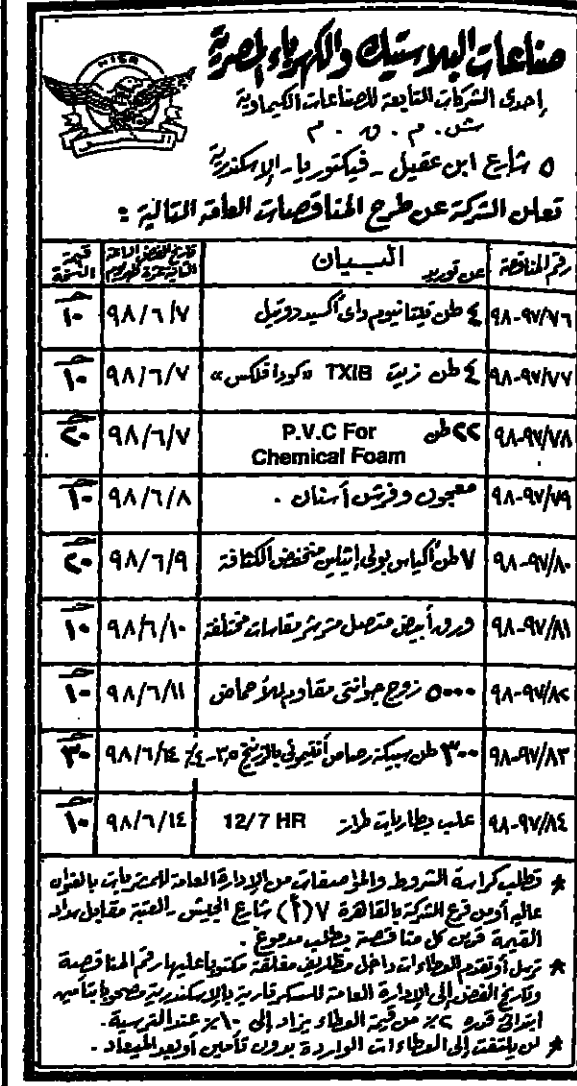 MISR
النسر
صناعات البلاستيك والكهرباء المصرية
إحدى الشركات التابعة للصناعات الكيماوية
ش . م . ق . م
٥ شارع ابن عقيل - فيكتوريا - الإسكندرية
تعلن الشركة عن طرح المناقصات العامة التالية :
رقم المناقصة عن توريد البيان تاريخ الفض الساعة الثانية عشرة ظهر يوم قيمة النسخة
٩٨-٩٧/٧٦ ٤ طن تيتانيوم داى أكسيد روتيل ٩٨/٦/٧ ١٠ جـ
٩٨-٩٧/٧٧ ٤ طن زيت TXIB «كودافلكس» ٩٨/٦/٧ ١٠ جـ
٩٨-٩٧/٧٨ ٢٢ طن P.V.C For Chemical Foam ٩٨/٦/٧ ٢٠ جـ
٩٨-٩٧/٧٩ معجون وفرش أسنان . ٩٨/٦/٨ ١٠ جـ
٩٨-٩٧/٨٠ ٧ طن أكياس بولى إيثلين منخفض الكثافة ٩٨/٦/٩ ٢٠ جـ
٩٨-٩٧/٨١ ورق أبيض متصل مشرشر مقاسات مختلفة ٩٨/٦/١٠ ١٠ جـ
٩٨-٩٧/٨٢ ٥٠٠٠ زوج جوانتى مقاوم للأحماض ٩٨/٦/١١ ١٠ جـ
٩٨-٩٧/٨٣ ٣٠٠ طن سبيكة رصاص أنتيمونى بالزرنيخ ٣,٥-٤٪ ٩٨/٦/١٤ ٣٠ جـ
٩٨-٩٧/٨٤ علب بطاريات طراز 12/7 HR ٩٨/٦/١٤ ١٠ جـ
* تطلب كراسة الشروط والمواصفات من الإدارة العامة للمشتريات بالعنوان
عاليه أو من فرع الشركة بالقاهرة ٧ (أ) شارع الجيش - العتبة مقابل سداد
القيمة قرين كل مناقصة بطلب مدموغ .
* ترسل أو تقدم العطاءات داخل مظاريف مغلقة مكتوباً عليها رقم المناقصة
وتاريخ الفض إلى الإدارة العامة للسكرتارية بالإسكندرية مصحوباً بتأمين
ابتدائى قدره ٢٪ من قيمة العطاء يزاد إلى ١٠٪ عند الترسية .
* لن يلتفت إلى العطاءات الواردة بدون تأمين أو بعد الميعاد .